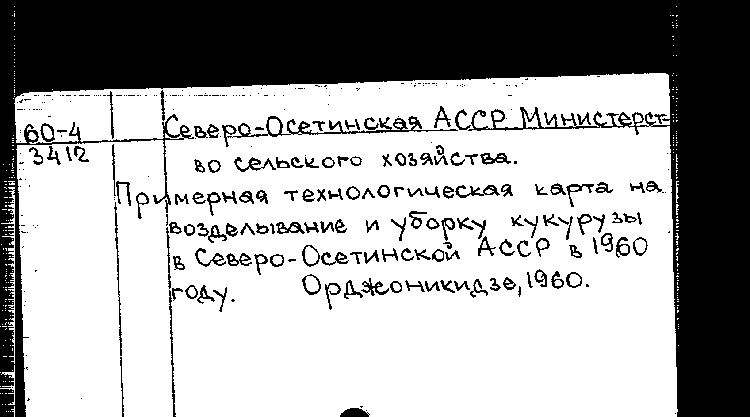 60-4 Северо-Осетинская АССР Министерст-
3412 во сельского хозяйства.
Примерная технологическая карта на
возделывание и уборку кукурузы
в Северо-Осетинской АССР в 1960
году. Орджоникидзе, 1960.